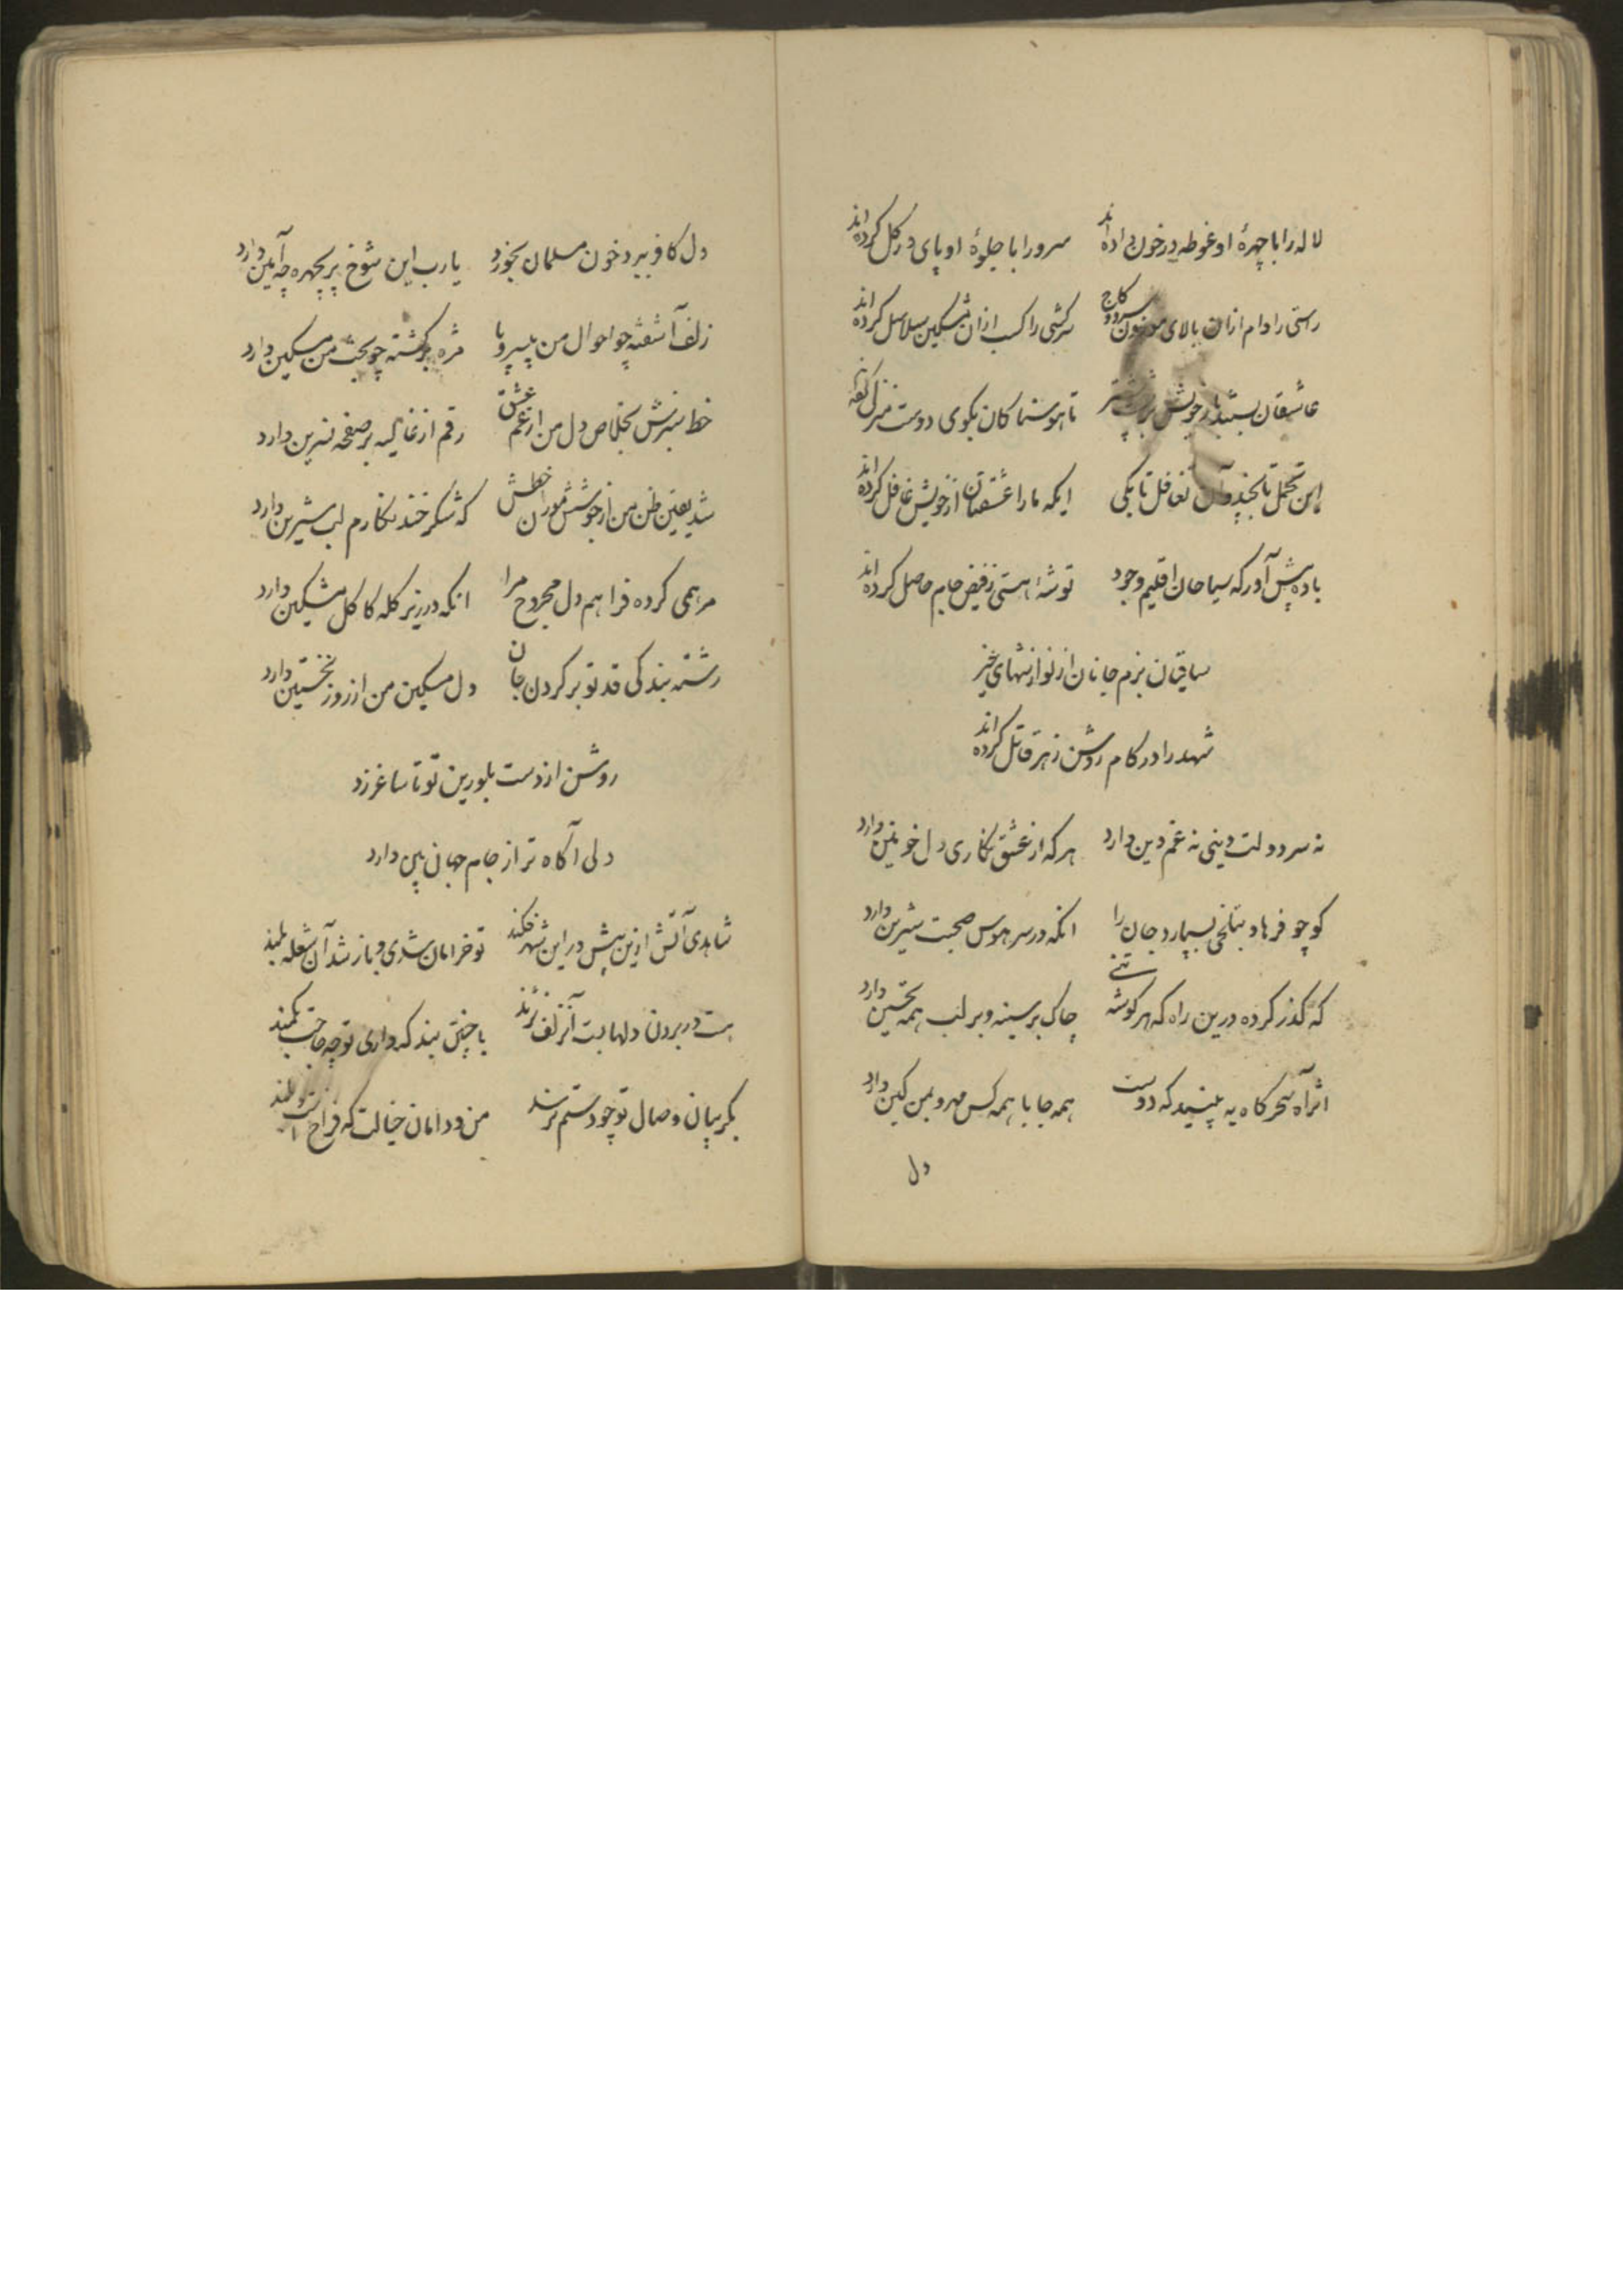 لاله را با چهرهٔ او غوطه در خون داده اند سرو را با جلوهٔ او پای در گل کرده اند
راستی را دام ازان بالای موزون سرو و کاج سرکشی را کسب ازان مشکین سلاسل کرده اند
عاشقان بستند بار خویش تا هوسناکان بکوی دوست منزل کرده اند
این تحمل تا بچند و آن تغافل تا بکی ایکه ما را عشقتان از خویش غافل کرده اند
باده پیش آور که سیاحان اقلیم وجود توشهٔ هستی ز فیض جام حاصل کرده اند
ساقیان بزم جانان از نوازشهای خیر
شهد را در کام روشن زهر قاتل کرده اند
نه سر دولت دینی نه غم دین دارد هر که از عشق نکاری دل خونین دارد
کو چو فرهاد بتلخی بسپارد جان را انکه در سر هوس صحبت شیرین دارد
که گذر کرده درین راه که هر کوشه تنی چاک بر سینه و بر لب همه تحسین دارد
اثر آه سحرکاه به بینید که دوست همه جا با همه کس مهر و بمن کین دارد
دل
دل کافر ببرد خون مسلمان بخورد یا رب این شوخ پریچهره چه آیین دارد
زلف آشفته چو احوال من بیسر و پا مژه برکشته چو بخت من مسکین دارد
خط سبزش بخلاص دل من از غم عشق رقم از غالیه بر صفحه نسرین دارد
شد یقین ظن من از جوشش موران خطش که شکرخند نکارم لب شیرین دارد
مرهمی کرده فراهم دل مجروح مرا انکه در زیر کله کاکل مشکین دارد
رشته بندکی قد تو بر کردن جان دل مسکین من از روز نخستین دارد
روشن از دست بلورین تو تا ساغر زد
دلی آکاه تر از جام جهان بین دارد
شاهدی آتش ازین پیش در این شهر فکند تو خرامان شدی و باز شد آن شعله بلند
دست در بردن دلها بت آن زلف نژند با چنین بند که داری تو چه حاجت بکمند
بکریبان وصال تو چو دستم نرسد من و دامان خیالت که فراخ است و بلند